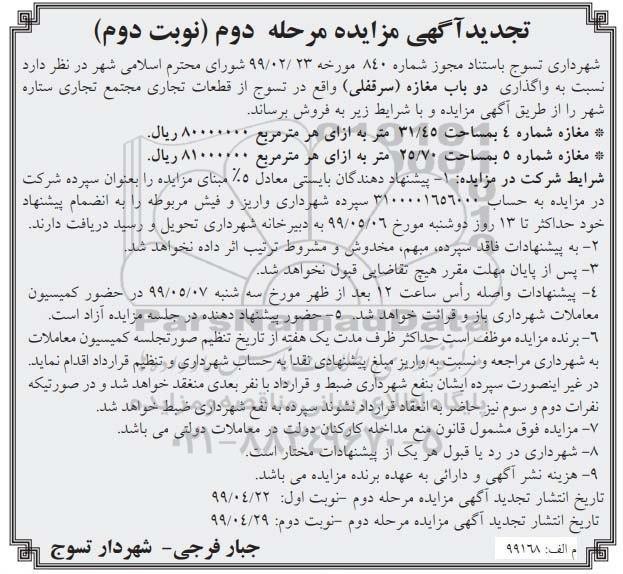 تجدیدآگهی مزایده مرحله دوم (نوبت دوم)
شهرداری تسوج باستناد مجوز شماره ۸۴۰ مورخه ۲۳ /۹۹/۰۲ شورای محترم اسلامی شهر در نظر دارد
نسبت به واگذاری دو باب مغازه (سرقفلی) واقع در تسوج از قطعات تجاری مجتمع تجاری ستاره
شهر را از طریق آگهی مزایده و با شرایط زیر به فروش برساند.
* مغازه شماره ۴ بمساحت ۳۱/۴۵ متر به ازای هر مترمربع ۸۰۰۰۰۰۰۰ ریال.
* مغازه شماره ۵ بمساحت ۲۵/۷۰ متر به ازای هر مترمربع ۸۱۰۰۰۰۰۰ ریال.
شرایط شرکت در مزایده: ۱- پیشنهاد دهندگان بایستی معادل ۵٪ مبنای مزایده را بعنوان سپرده شرکت
در مزایده به حساب ۳۱۰۰۰۰۱۶۵۶۰۰۰ سپرده شهرداری واریز و فیش مربوطه را به انضمام پیشنهاد
خود حداکثر تا ۱۳ روز دوشنبه مورخ ۹۹/۰۵/۰۶ به دبیرخانه شهرداری تحویل و رسید دریافت دارند.
۲- به پیشنهادات فاقد سپرده، مبهم، مخدوش و مشروط ترتیب اثر داده نخواهد شد.
۳- پس از پایان مهلت مقرر هیچ تقاضایی قبول نخواهد شد.
۴- پیشنهادات واصله رأس ساعت ۱۲ بعد از ظهر مورخ سه شنبه ۹۹/۰۵/۰۷ در حضور کمیسیون
معاملات شهرداری باز و قرائت خواهد شد. ۵- حضور پیشنهاد دهنده در جلسه مزایده آزاد است.
۶- برنده مزایده موظف است حداکثر ظرف مدت یک هفته از تاریخ تنظیم صورتجلسه کمیسیون معاملات
به شهرداری مراجعه و نسبت به واریز مبلغ پیشنهادی نقداً به حساب شهرداری و تنظیم قرارداد اقدام نماید.
در غیر اینصورت سپرده ایشان بنفع شهرداری ضبط و قرارداد با نفر بعدی منعقد خواهد شد و در صورتیکه
نفرات دوم و سوم نیز حاضر به انعقاد قرارداد نشوند سپرده به نفع شهرداری ضبط خواهد شد.
۷- مزایده فوق مشمول قانون منع مداخله کارکنان دولت در معاملات دولتی می باشد.
۸- شهرداری در رد یا قبول هر یک از پیشنهادات مختار است.
۹- هزینه نشر آگهی و دارائی به عهده برنده مزایده می باشد.
تاریخ انتشار تجدید آگهی مزایده مرحله دوم -نوبت اول: ۹۹/۰۴/۲۲
تاریخ انتشار تجدید آگهی مزایده مرحله دوم -نوبت دوم: ۹۹/۰۴/۲۹
م الف: ۹۹۱۶۸
جبار فرجی- شهردار تسوج
ParsNamadData
پایگاه اطلاع رسانی مناقصه و مزایده
۰۲۱-۸۸۳۴۹۶۷۰-۵